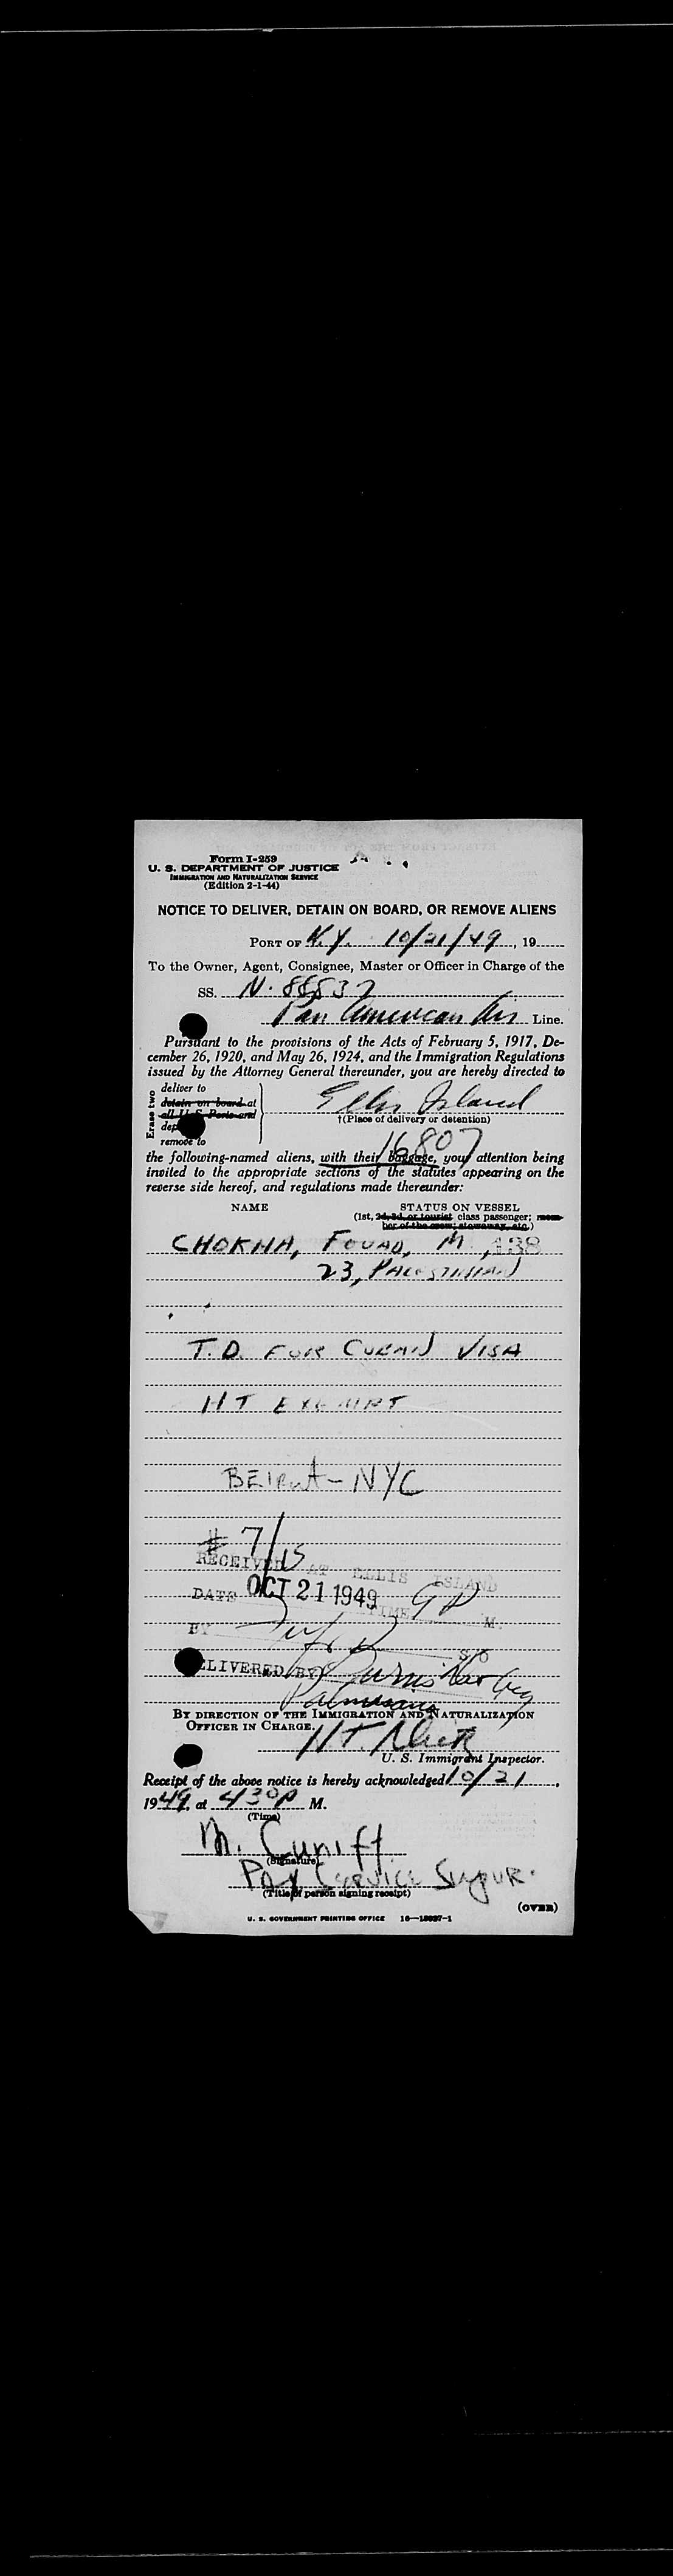 Form I-259
U. S. DEPARTMENT OF JUSTICE
IMMIGRATION AND NATURALIZATION SERVICE
(Edition 2-1-44)
NOTICE TO DELIVER, DETAIN ON BOARD, OR REMOVE ALIENS
PORT OF N.Y. 10/21/49, 19
To the Owner, Agent, Consignee, Master or Officer in Charge of the
SS. N. 88837
Pan American Air Line.
Pursuant to the provisions of the Acts of February 5, 1917, De-
cember 26, 1920, and May 26, 1924, and the Immigration Regulations
issued by the Attorney General thereunder, you are hereby directed to
Erase two
deliver to
detain on board at
all U.S. Ports and
remove to
Ellis Island
†(Place of delivery or detention)
16807
the following-named aliens, with their baggage, your attention being
invited to the appropriate sections of the statutes appearing on the
reverse side hereof, and regulations made thereunder:
NAME STATUS ON VESSEL
(1st, 2d, 3d, or tourist class passenger; mem-
ber of the crew; stowaway, etc.)
CHOKHA, FOUAD, M, 138
23, PALESTINIAN
T.D. FOR CUBAN VISA
HT EXEMPT
BEIRUT-NYC
# 7/15
RECEIVED AT ELLIS ISLAND
DATE OCT 21 1949 TIME 9 P M.
BY
DELIVERED BY Burns
Palmesano
BY DIRECTION OF THE IMMIGRATION AND NATURALIZATION
OFFICER IN CHARGE.
U. S. Immigrant Inspector.
Receipt of the above notice is hereby acknowledged 10/21,
1949, at 430 P M.
(Time)
M. Cuniff
(Signature)
Service
(Title of person signing receipt)
(OVER)
U. S. GOVERNMENT PRINTING OFFICE 16—18897-1